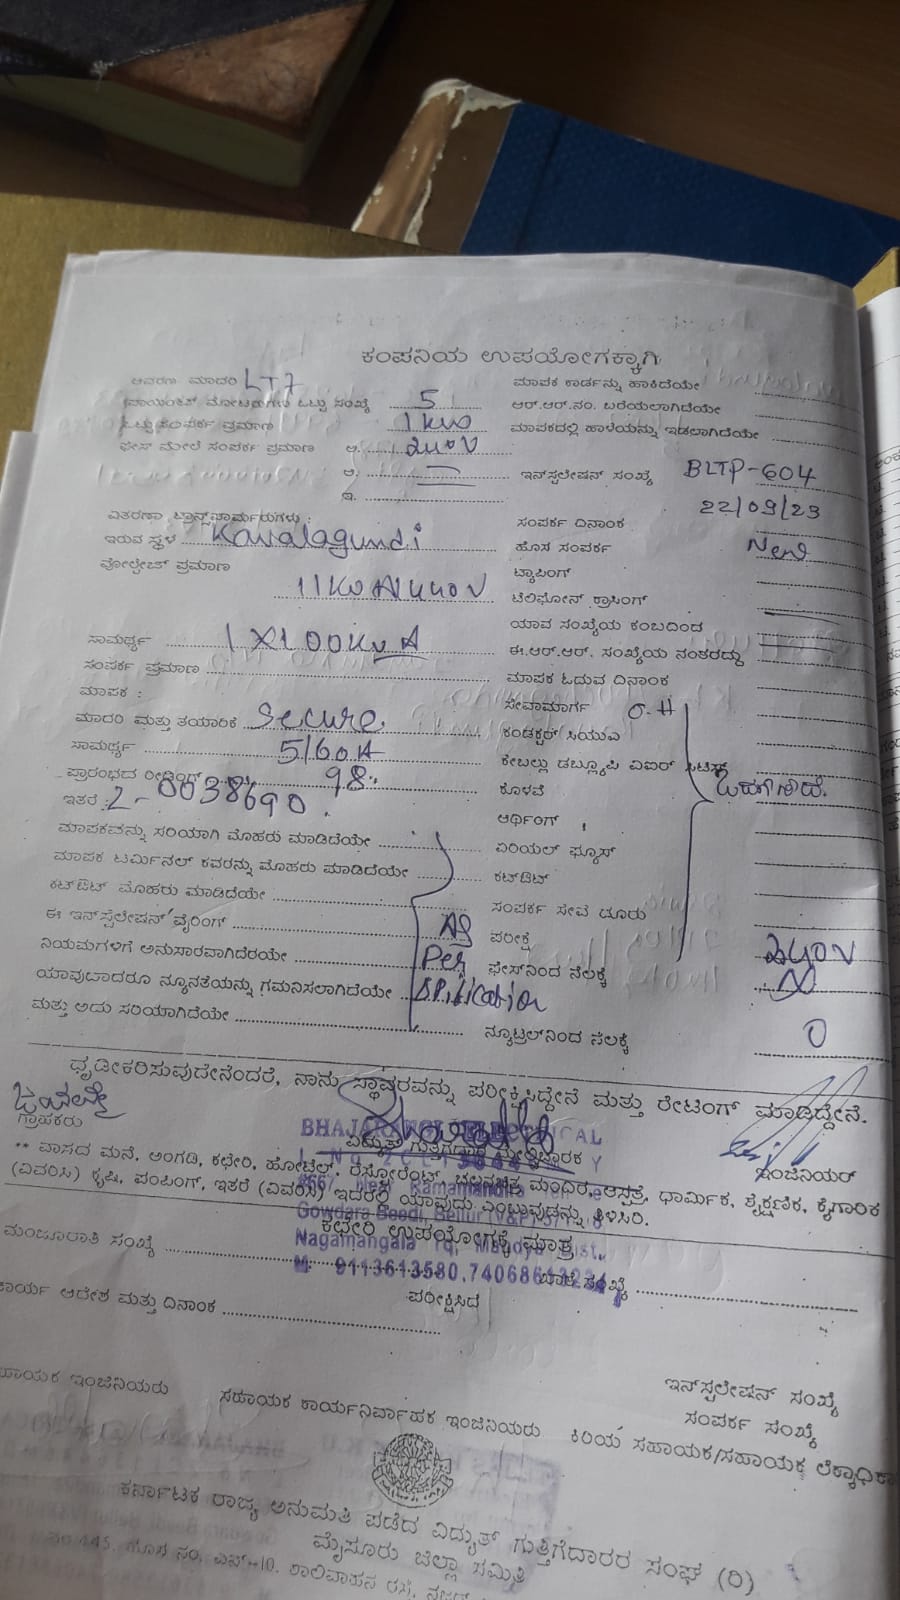 ಕಂಪನಿಯ ಉಪಯೋಗಕ್ಕಾಗಿ
ಆವರಣ ಮಾದರಿ LT7 ಮಾಪಕ ಕಾರ್ಡನ್ನು ಹಾಕಿದೆಯೇ
ಒಟ್ಟು ಸಂಖ್ಯೆ 5 ಆರ್.ಆರ್.ನಂ. ಬರೆಯಲಾಗಿದೆಯೇ
ಒಟ್ಟು ಸಂಪರ್ಕ ಪ್ರಮಾಣ 1 kw ಮಾಪಕದಲ್ಲಿ ಹಾಳೆಯನ್ನು ಇಡಲಾಗಿದೆಯೇ
ಫೇಸ್ ಮೇಲೆ ಸಂಪರ್ಕ ಪ್ರಮಾಣ ಅ. 240V
ಆ. ಇನ್‌ಸ್ಟಲೇಷನ್ ಸಂಖ್ಯೆ BLTP-604
ಇ.
ವಿತರಣಾ ಟ್ರಾನ್ಸ್‌ಫಾರ್ಮರುಗಳು : ಸಂಪರ್ಕ ದಿನಾಂಕ 22/09/23
ಇರುವ ಸ್ಥಳ Kavalagundi ಹೊಸ ಸಂಪರ್ಕ New
ವೋಲ್ಟೇಜ್ ಪ್ರಮಾಣ ಟ್ಯಾಪಿಂಗ್
ಟೆಲಿಫೋನ್ ಕ್ರಾಸಿಂಗ್
ಯಾವ ಸಂಖ್ಯೆಯ ಕಂಬದಿಂದ
ಸಾಮರ್ಥ್ಯ 1X100KvA ಈ.ಆರ್.ಆರ್. ಸಂಖ್ಯೆಯ ನಂತರದ್ದು
ಸಂಪರ್ಕ ಪ್ರಮಾಣ ಮಾಪಕ ಓದುವ ದಿನಾಂಕ
ಮಾಪಕ : ಸೇವಾಮಾರ್ಗ O.H
ಮಾದರಿ ಮತ್ತು ತಯಾರಿಕೆ Secure ಕಂಡಕ್ಟರ್ ಸಿಯುವ
ಸಾಮರ್ಥ್ಯ 5/60A ಕೇಬಲ್ಲು ಡಬ್ಲ್ಯೂಪಿ ಏಐರ್
ಪ್ರಾರಂಭದ ರೀಡಿಂಗ್ 98 ಕೊಳವೆ
ಇತರೆ : 2-0038690 ಆರ್ಥಿಂಗ್
ಮಾಪಕವನ್ನು ಸರಿಯಾಗಿ ಮೊಹರು ಮಾಡಿದೆಯೇ ಏರಿಯಲ್ ಫ್ಯೂಸ್
ಮಾಪಕ ಟರ್ಮಿನಲ್ ಕವರನ್ನು ಮೊಹರು ಮಾಡಿದೆಯೇ ಕಟ್‌ಔಟ್
ಕಟ್‌ಔಟ್ ಮೊಹರು ಮಾಡಿದೆಯೇ ಸಂಪರ್ಕ ಸೇವೆ ದೂರು
ಈ ಇನ್‌ಸ್ಟಲೇಷನ್ ವೈರಿಂಗ್ As ಪರೀಕ್ಷೆ
ನಿಯಮಗಳಿಗೆ ಅನುಸಾರವಾಗಿದೆರಯೇ Per ಫೇಸ್‌ನಿಂದ ನೆಲಕ್ಕೆ 240V
ಯಾವುದಾದರೂ ನ್ಯೂನತೆಯನ್ನು ಗಮನಿಸಲಾಗಿದೆಯೇ
ಮತ್ತು ಅದು ಸರಿಯಾಗಿದೆಯೇ ನ್ಯೂಟ್ರಲ್‌ನಿಂದ ನೆಲಕ್ಕೆ 0
ಧೃಡೀಕರಿಸುವುದೇನೆಂದರೆ, ನಾನು ಸ್ಥಾವರವನ್ನು ಪರೀಕ್ಷಿಸಿದ್ದೇನೆ ಮತ್ತು ರೇಟಿಂಗ್ ಮಾಡಿದ್ದೇನೆ.
ಗ್ರಾಹಕರು ವಿದ್ಯುತ್ ಗುತ್ತಿಗೆದಾರ ಮೇಲ್ವಿಚಾರಕ ಇಂಜಿನಿಯರ್
** ವಾಸದ ಮನೆ, ಅಂಗಡಿ, ಕಛೇರಿ, ಹೋಟೆಲ್, ರೆಸ್ಟೋರೆಂಟ್, ಚಲನಚಿತ್ರ ಮಂದಿರ, ಆಸ್ಪತ್ರೆ, ಧಾರ್ಮಿಕ, ಶೈಕ್ಷಣಿಕ, ಕೈಗಾರಿಕ
(ವಿವರಿಸಿ) ಕೃಷಿ, ಪಂಪಿಂಗ್, ಇತರೆ (ವಿವರಿಸಿ) ಇದರಲ್ಲಿ ಯಾವುದು ಎಂಬುವುದನ್ನು ತಿಳಿಸಿರಿ.
Gowdara Beedi, Bellur
ಕಛೇರಿ ಉಪಯೋಗಕ್ಕೆ ಮಾತ್ರ
Nagamangala Tq, Mandya Dist.
ಮಂಜೂರಾತಿ ಸಂಖ್ಯೆ ಖಾತೆ ಸಂಖ್ಯೆ
M: 9113613580,
ಕಾರ್ಯ ಆದೇಶ ಮತ್ತು ದಿನಾಂಕ ಪರೀಕ್ಷಿಸಿದೆ
ಇನ್‌ಸ್ಟಲೇಷನ್ ಸಂಖ್ಯೆ
ಸಂಪರ್ಕ ಸಂಖ್ಯೆ
ಸಹಾಯಕ ಇಂಜಿನಿಯರು ಸಹಾಯಕ ಕಾರ್ಯನಿರ್ವಾಹಕ ಇಂಜಿನಿಯರು ಕಿರಿಯ ಸಹಾಯಕ/ಸಹಾಯಕ
ಕರ್ನಾಟಕ ರಾಜ್ಯ ಅನುಮತಿ ಪಡೆದ ವಿದ್ಯುತ್ ಗುತ್ತಿಗೆದಾರರ ಸಂಘ (ರಿ)
ಮೈಸೂರು ಜಿಲ್ಲಾ ಸಮಿತಿ